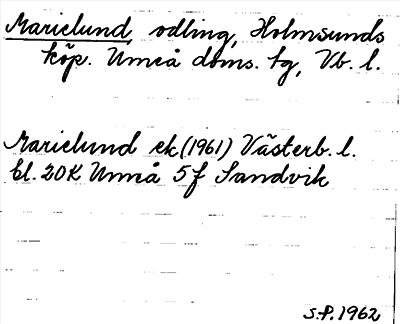 Marielund odling, Holmsunds
köp. Umeå doms. tg, Vb. l.
Marielund ek (1961) Västerb. l.
bl. 20K Umeå 5f Sandvik
S.P. 1962